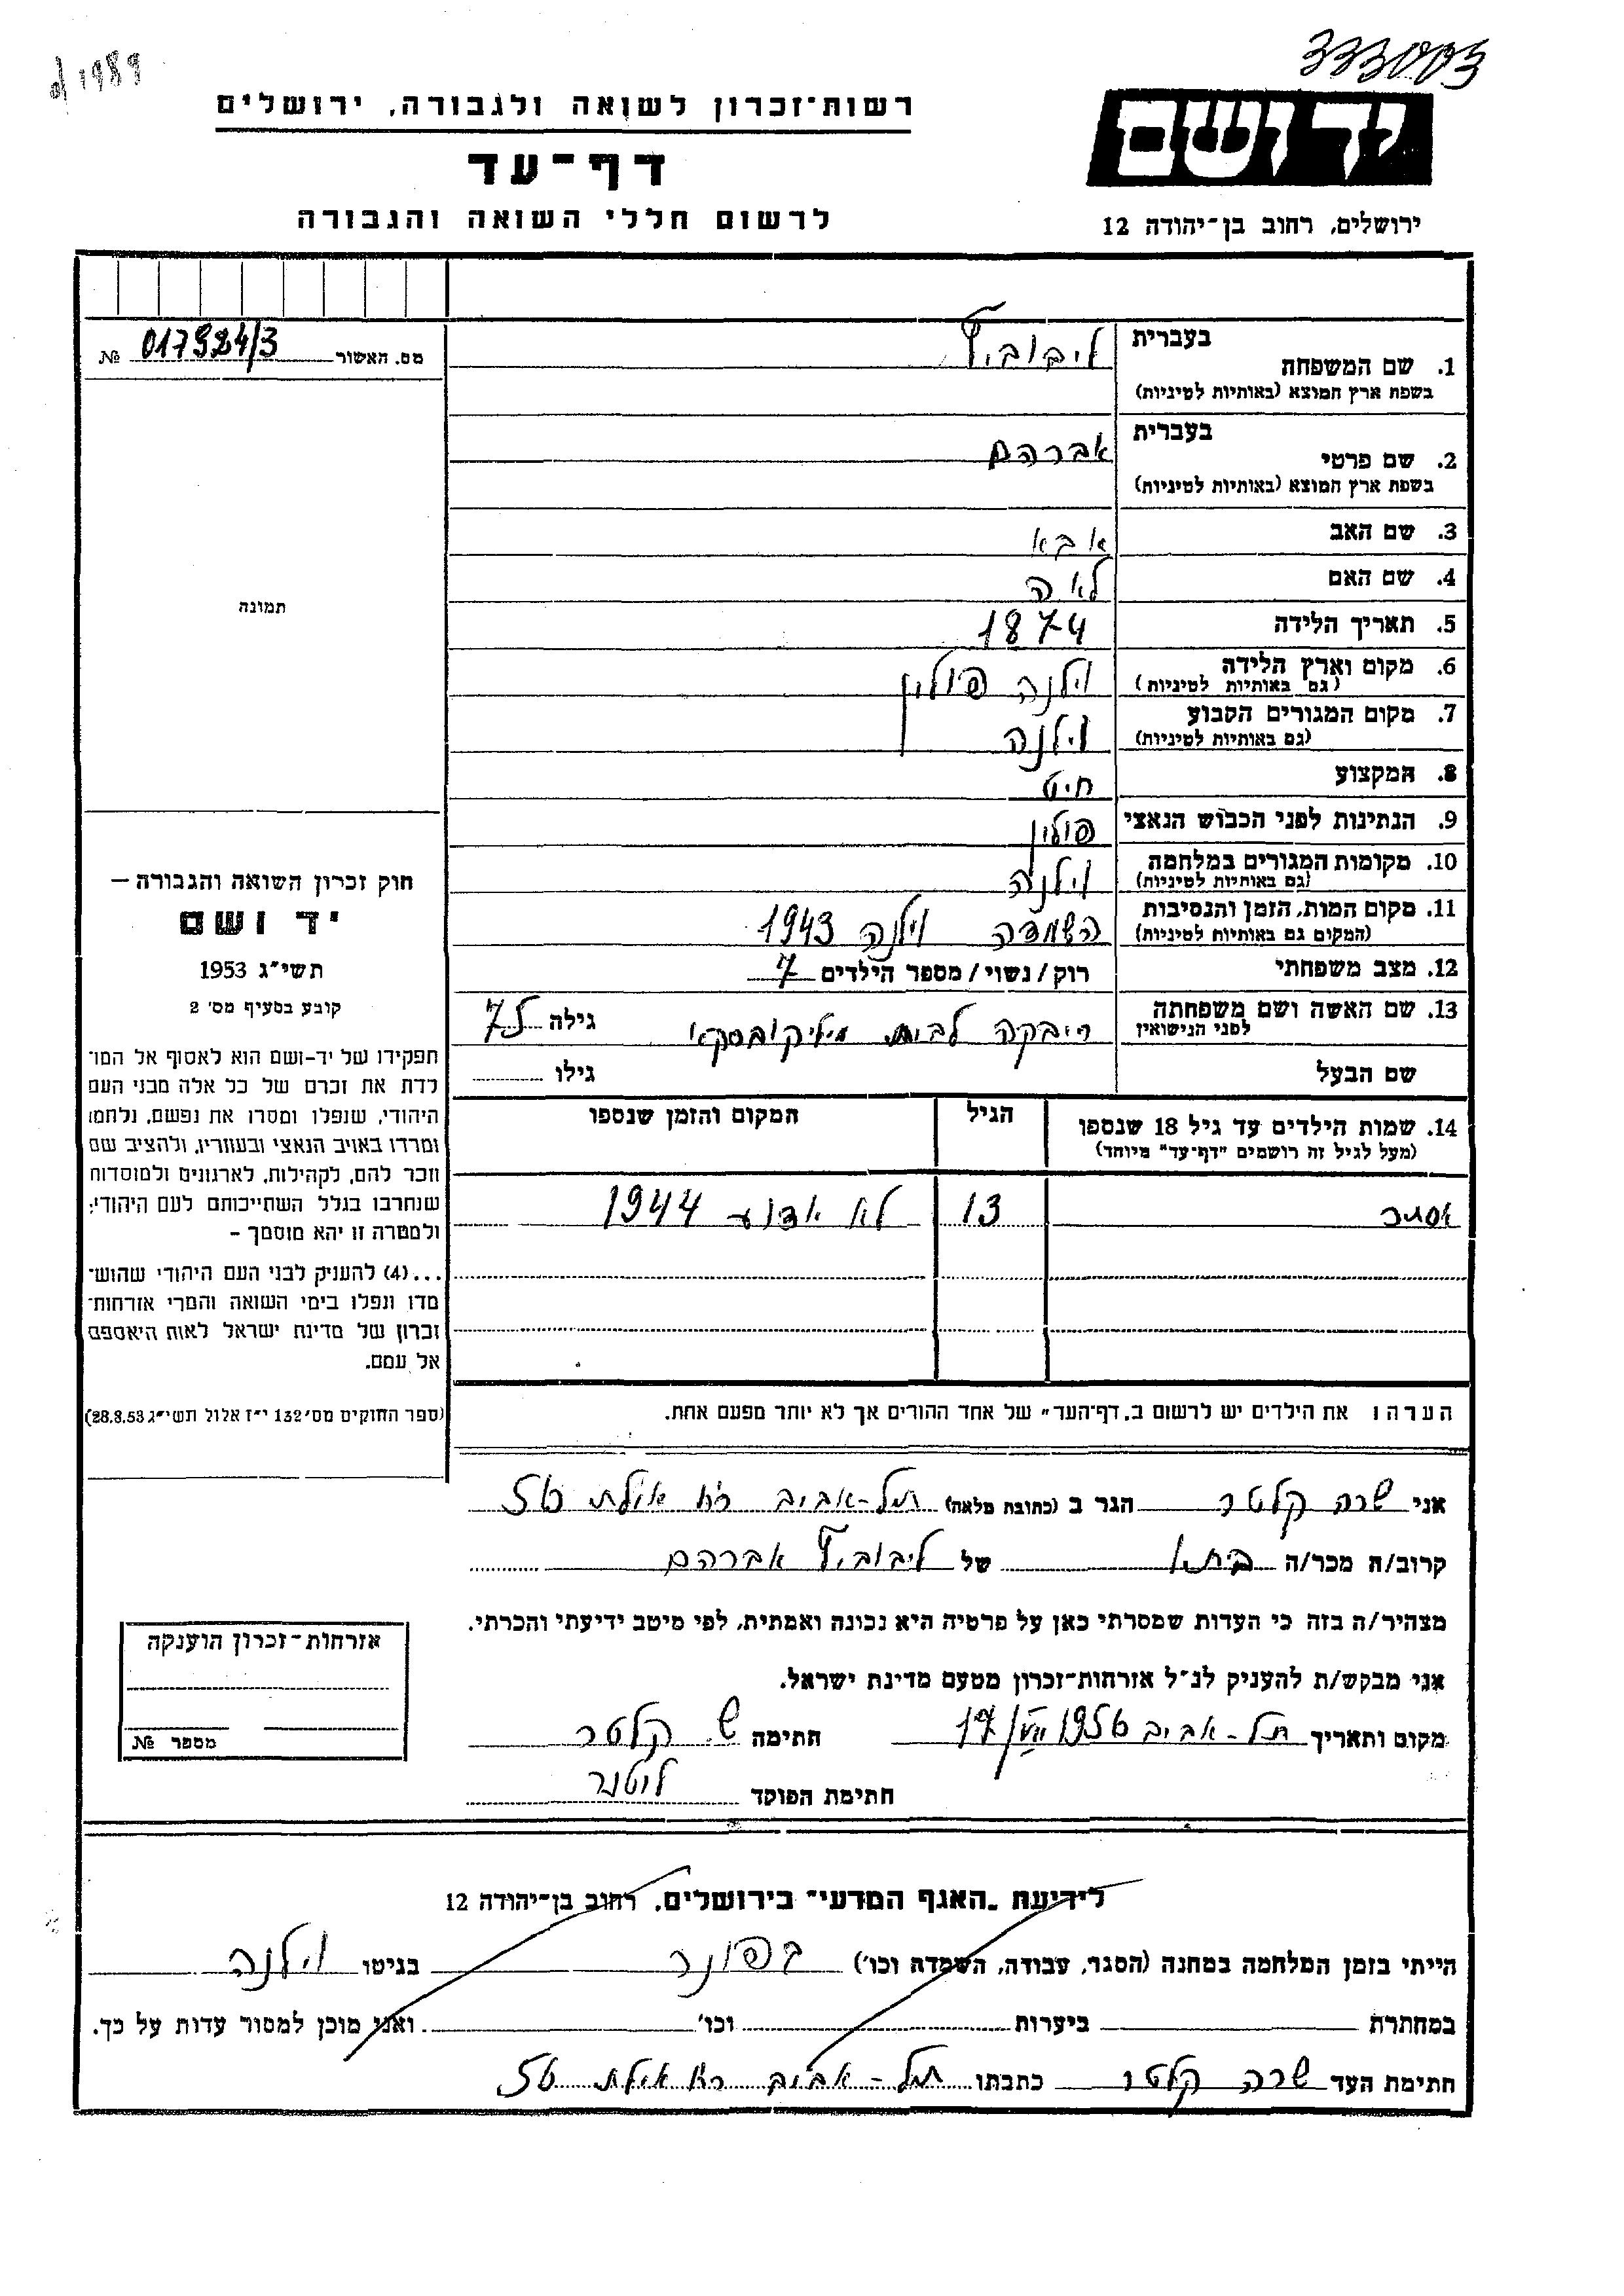 333003
1989
יד ושם
רשות-זכרון לשואה ולגבורה, ירושלים
דף-עד
ירושלים, רחוב בן-יהודה 12
לרשום חללי השואה והגבורה
מס. האשור 017924/3 №
תמונה
1. שם המשפחה בעברית ליבוביץ
בשפת ארץ המוצא (באותיות לטיניות)
2. שם פרטי בעברית אברהם
בשפת ארץ המוצא (באותיות לטיניות)
3. שם האב אבא
4. שם האם לאה
5. תאריך הלידה 1874
6. מקום וארץ הלידה (גם באותיות לטיניות) וילנה פולין
7. מקום המגורים הקבוע (גם באותיות לטיניות) וילנה
8. המקצוע חיט
9. הנתינות לפני הכבוש הנאצי פולין
10. מקומות המגורים במלחמה (גם באותיות לטיניות) וילנה
11. מקום המות, הזמן והנסיבות (המקום גם באותיות לטיניות) השמדה וילנה 1943
12. מצב משפחתי רוק / נשוי / מספר הילדים 7
13. שם האשה ושם משפחתה לפני הנישואין ריבקה לבית מיליקובסקי גילה 75
שם הבעל גילו
14. שמות הילדים עד גיל 18 שנספו הגיל המקום והזמן שנספו
(מעל לגיל זה רושמים "דף-עד" מיוחד)
אסתר 13 לא ידוע 1944
חוק זכרון השואה והגבורה —
יד ושם
תשי"ג 1953
קובע בסעיף מס' 2
תפקידו של יד-ושם הוא לאסוף אל המו־
לדת את זכרם של כל אלה מבני העם
היהודי, שנפלו ומסרו את נפשם, נלחמו
ומרדו באויב הנאצי ובעוזריו, ולהציב שם
וזכר להם, לקהילות, לארגונים ולמוסדות
שנחרבו בגלל השתייכותם לעם היהודי;
ולמטרה זו יהא מוסמך –
...(4) להעניק לבני העם היהודי שהוש־
מדו ונפלו בימי השואה והמרי אזרחות־
זכרון של מדינת ישראל לאות היאספם
אל עמם.
(ספר החוקים מס' 132 י"ז אלול תשי"ג 28.8.53)
הערה: את הילדים יש לרשום ב„דף-העד" של אחד ההורים אך לא יותר מפעם אחת.
אני שרה קלטר הגר ב (כתובת מלאה) תל-אביב רח' אילת 56
קרוב/ה מכר/ה בתו של ליבוביץ אברהם
מצהיר/ה בזה כי העדות שמסרתי כאן על פרטיה היא נכונה ואמתית, לפי מיטב ידיעתי והכרתי.
אני מבקש/ת להעניק לנ"ל אזרחות-זכרון מטעם מדינת ישראל.
מקום ותאריך תל-אביב 17/VII 1956 חתימה ש. קלטר
חתימת הפוקד
אזרחות-זכרון הוענקה
מספר №
לידיעת „האגף המדעי" בירושלים, רחוב בן-יהודה 12
הייתי בזמן המלחמה במחנה (הסגר, עבודה, השמדה וכו') בפונר בגיטו וילנה
במחתרת ביערות וכו' ואני מוכן למסור עדות על כך.
חתימת העד שרה קלטר כתבתו תל-אביב רח' אילת 56